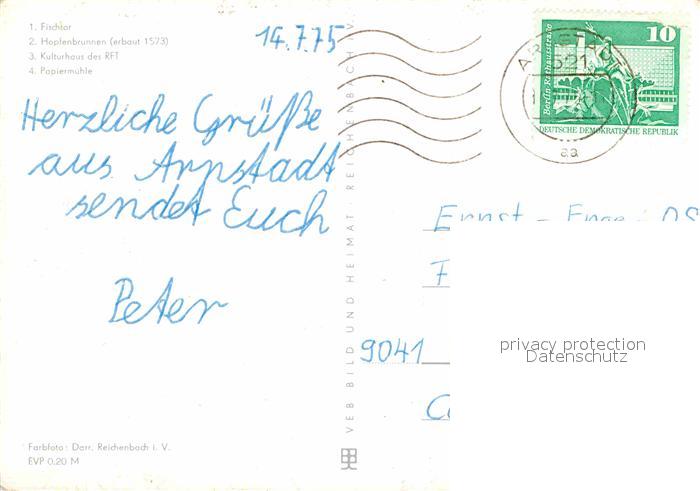 1. Fischtor
2. Hopfenbrunnen (erbaut 1573)
3. Kulturhaus des RFT
4. Papiermühle
14.7.75
Herzliche Grüße
aus Arnstadt
sendet Euch
Peter
Farbfoto: Darr, Reichenbach i. V.
EVP 0,20 M
VEB BILD UND HEIMAT REICHENBACH I. V.
10
Berlin Rathausstraße
DEUTSCHE DEMOKRATISCHE REPUBLIK
aa
Ernst -
9041
privacy protection
Datenschutz